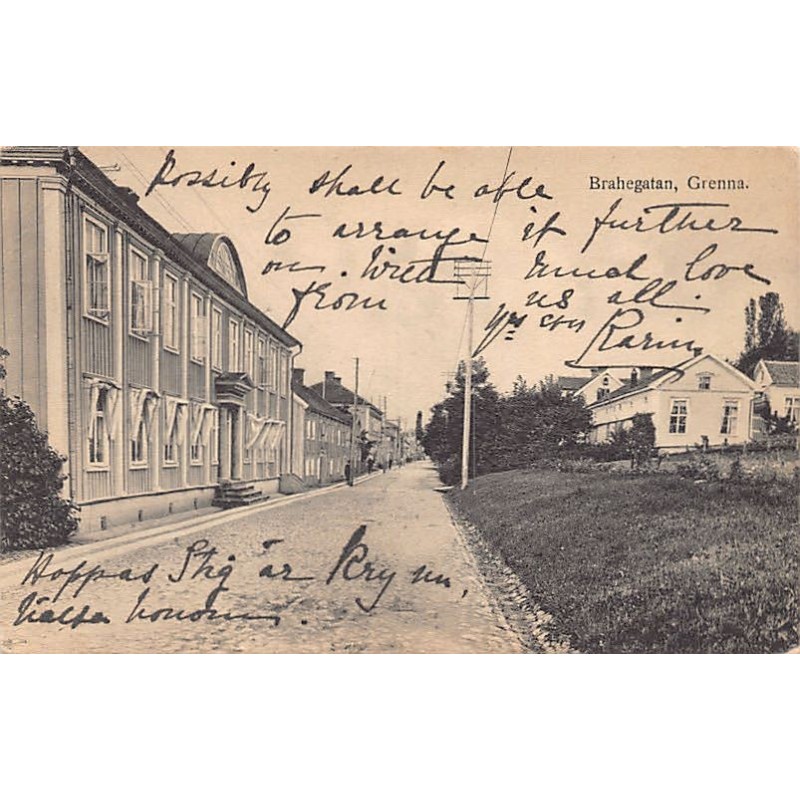 Brahegatan, Grenna.
Possibly shall be able
to arrange it further
on. With much love
from us all.
Yr con Karin
Hoppas Stig är kry nu,
hälsa honom.